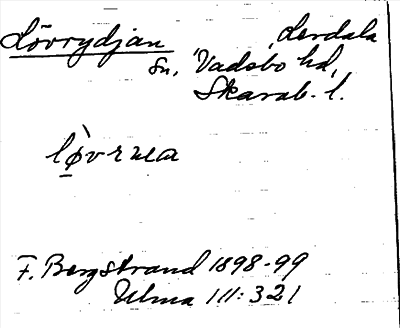 Lövrydjan Lerdala
sn, Vadsbo hd,
Skarab. l.
lø̀vrᴎa
F. Bergstrand 1898-99
Ulma 111:321